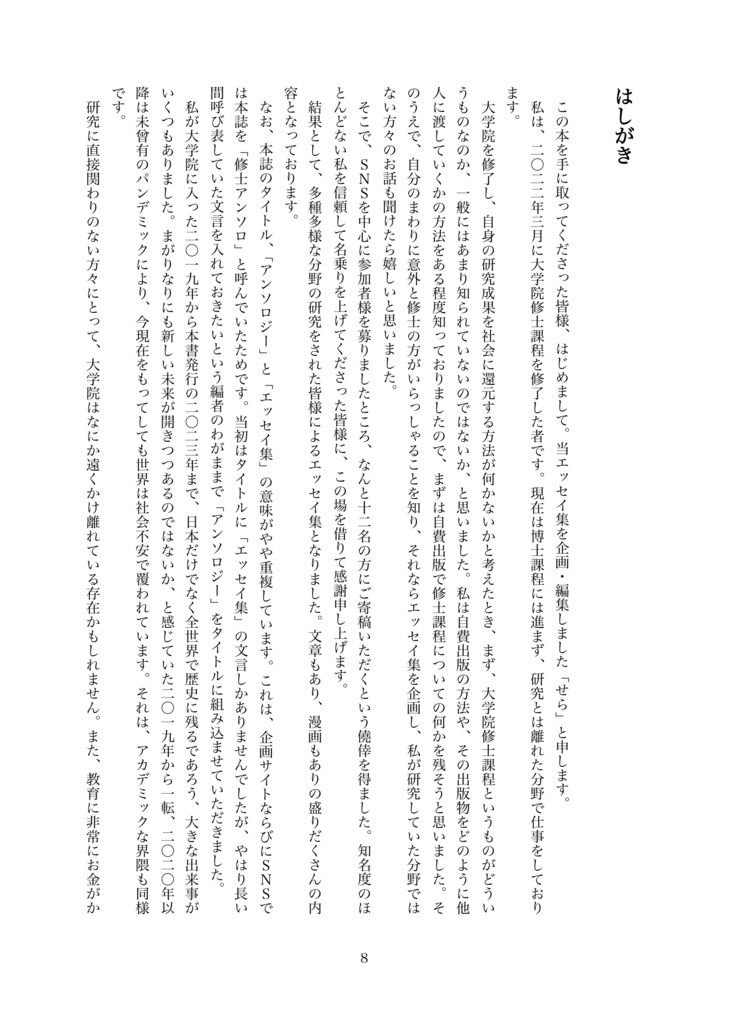 はしがき
　この本を手に取ってくださった皆様、はじめまして。当エッセイ集を企画・編集しました「せら」と申します。
　私は、二〇二二年三月に大学院修士課程を修了した者です。現在は博士課程には進まず、研究とは離れた分野で仕事をしており
ます。
　大学院を修了し、自身の研究成果を社会に還元する方法が何かないかと考えたとき、まず、大学院修士課程というものがどうい
うものなのか、一般にはあまり知られていないのではないか、と思いました。私は自費出版の方法や、その出版物をどのように他
人に渡していくかの方法をある程度知っておりましたので、まずは自費出版で修士課程についての何かを残そうと思いました。そ
のうえで、自分のまわりに意外と修士の方がいらっしゃることを知り、それならエッセイ集を企画し、私が研究していた分野では
ない方々のお話も聞けたら嬉しいと思いました。
　そこで、SNSを中心に参加者様を募りましたところ、なんと十二名の方にご寄稿いただくという僥倖を得ました。知名度のほ
とんどない私を信頼して名乗りを上げてくださった皆様に、この場を借りて感謝申し上げます。
　結果として、多種多様な分野の研究をされた皆様によるエッセイ集となりました。文章もあり、漫画もありの盛りだくさんの内
容となっております。
　なお、本誌のタイトル、「アンソロジー」と「エッセイ集」の意味がやや重複しています。これは、企画サイトならびにSNSで
は本誌を「修士アンソロ」と呼んでいたためです。当初はタイトルに「エッセイ集」の文言しかありませんでしたが、やはり長い
間呼び表していた文言を入れておきたいという編者のわがままで「アンソロジー」をタイトルに組み込ませていただきました。
　私が大学院に入った二〇一九年から本書発行の二〇二三年まで、日本だけでなく全世界で歴史に残るであろう、大きな出来事が
いくつもありました。まがりなりにも新しい未来が開きつつあるのではないか、と感じていた二〇一九年から一転、二〇二〇年以
降は未曾有のパンデミックにより、今現在をもってしても世界は社会不安で覆われています。それは、アカデミックな界隈も同様
です。
　研究に直接関わりのない方々にとって、大学院はなにか遠くかけ離れている存在かもしれません。また、教育に非常にお金がか
8